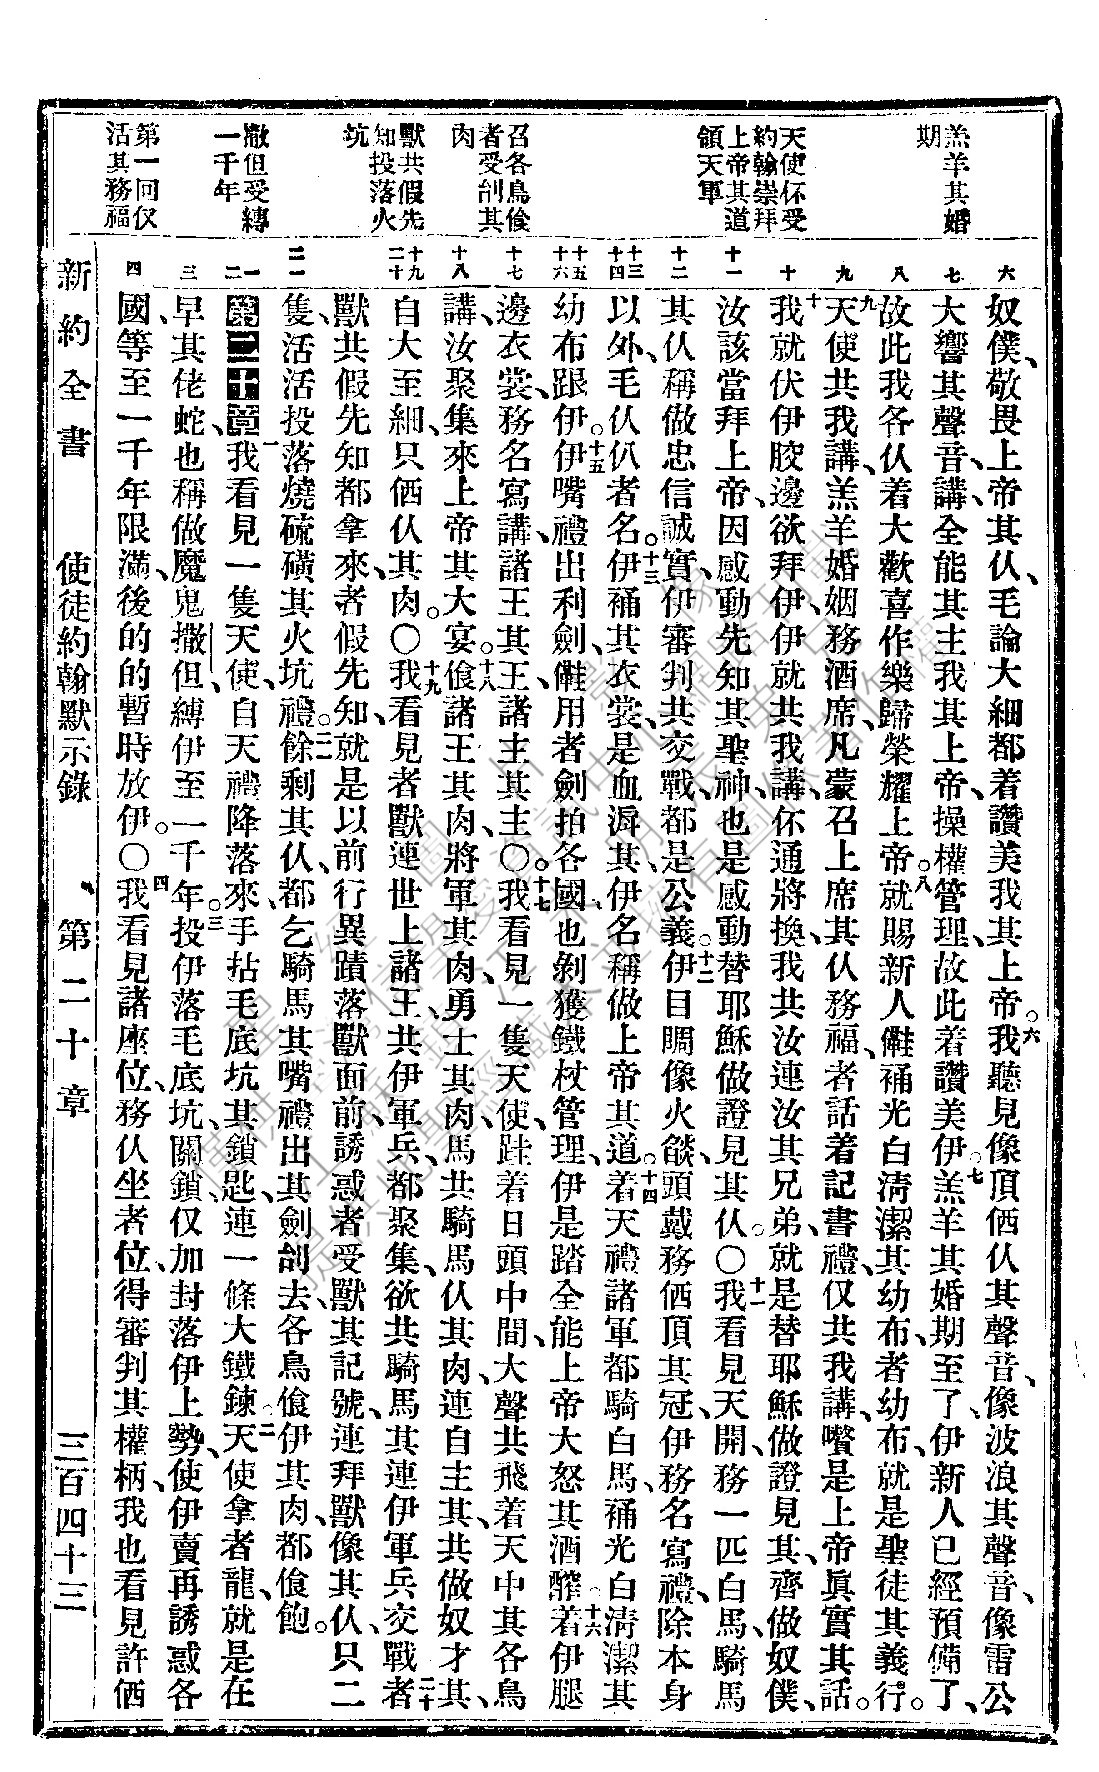 羔羊其婚
期
天使伓受
約翰崇拜
上帝其道
領天軍
召各鳥飧
者受刣其
肉
獸共假先
知投落火
坑
撒但受縛
一千年
第一回仅
活其務福
六
七
八
九
十
十一
十二
十三
十四
十五
十六
十七
十八
十九
二十
二一
一
二
三
四
奴僕、敬畏上帝其仈、毛論大細都着讚美我其上帝。六我聽見像頂㑚仈其聲音、像波浪其聲音、像雷公
大響其聲音、講、全能其主我其上帝、操權管理、故此着讚美伊。七羔羊其婚期至了、伊新人已經預備了、
故此我各仈着大歡喜作樂、歸榮耀上帝。八就賜新人儺補光白清潔其幼布、者幼布、就是聖徒其義行。
九天使共我講、羔羊婚姻務酒席、凡蒙召上席其仈務福、者話着記書禮、仅共我講、嚽是上帝眞實其話。
十我就伏伊骹邊欲拜伊、伊就共我講、伓通將換、我共汝連汝其兄弟、就是替耶穌做證見其、齊做奴僕、
汝該當拜上帝、因感動先知其聖神、也是感動替耶穌做證見其仈。〇十一我看見天開、務一匹白馬、騎馬
其仈稱做忠信誠實、伊審判共交戰、都是公義。十二伊目睭像火燄、頭戴務㑚頂其冠、伊務名寫禮、除本身
以外、毛仈仈者名。十三伊補其衣裳、是血濔其、伊名稱做上帝其道。十四着天禮諸軍都騎白馬、補光白清潔其
幼布跟伊。十五伊嘴禮出利劍、儺用者劍拍各國、也剝獲鐵杖管理、伊是踏全能上帝大怒其酒醡。十六着伊腿
邊衣裳、務名寫講、諸王其王、諸主其主。〇十七我看見一隻天使、跬着日頭中間、大聲共飛着天中其各鳥
講、汝聚集來上帝其大宴。十八飧諸王其肉、將軍其肉、勇士其肉、馬共騎馬仈其肉、連自主其、共做奴才其、
自大至細、只㑚仈其肉。〇十九我看見者獸連世上諸王、共伊軍兵、都聚集、欲共騎馬其連伊軍兵交戰。二十者
獸共假先知都拿來、者假先知、就是以前行異蹟落獸面前、誘惑者受獸其記號、連拜獸像其仈、只二
隻、活活投落燒硫磺其火坑禮。二一餘剩其仈、都乞騎馬其嘴禮出其劍刣去、各鳥飧伊其肉、都飧飽。
第二十章一我看見一隻天使、自天禮降落來、手拈毛底坑其鎖匙、連一條大鐵鍊。二天使拿者龍、就是在
早其佬蛇、也稱做魔鬼撒但、縛伊至一千年。三投伊落毛底坑、關鎖、仅加封落伊上勢、使伊賣再誘惑各
國、等至一千年限滿、後的的暫時放伊。〇四我看見諸座位、務仈坐者位、得審判其權柄、我也看見許㑚
新約全書 使徒約翰默示錄 第二十章 三百四十三